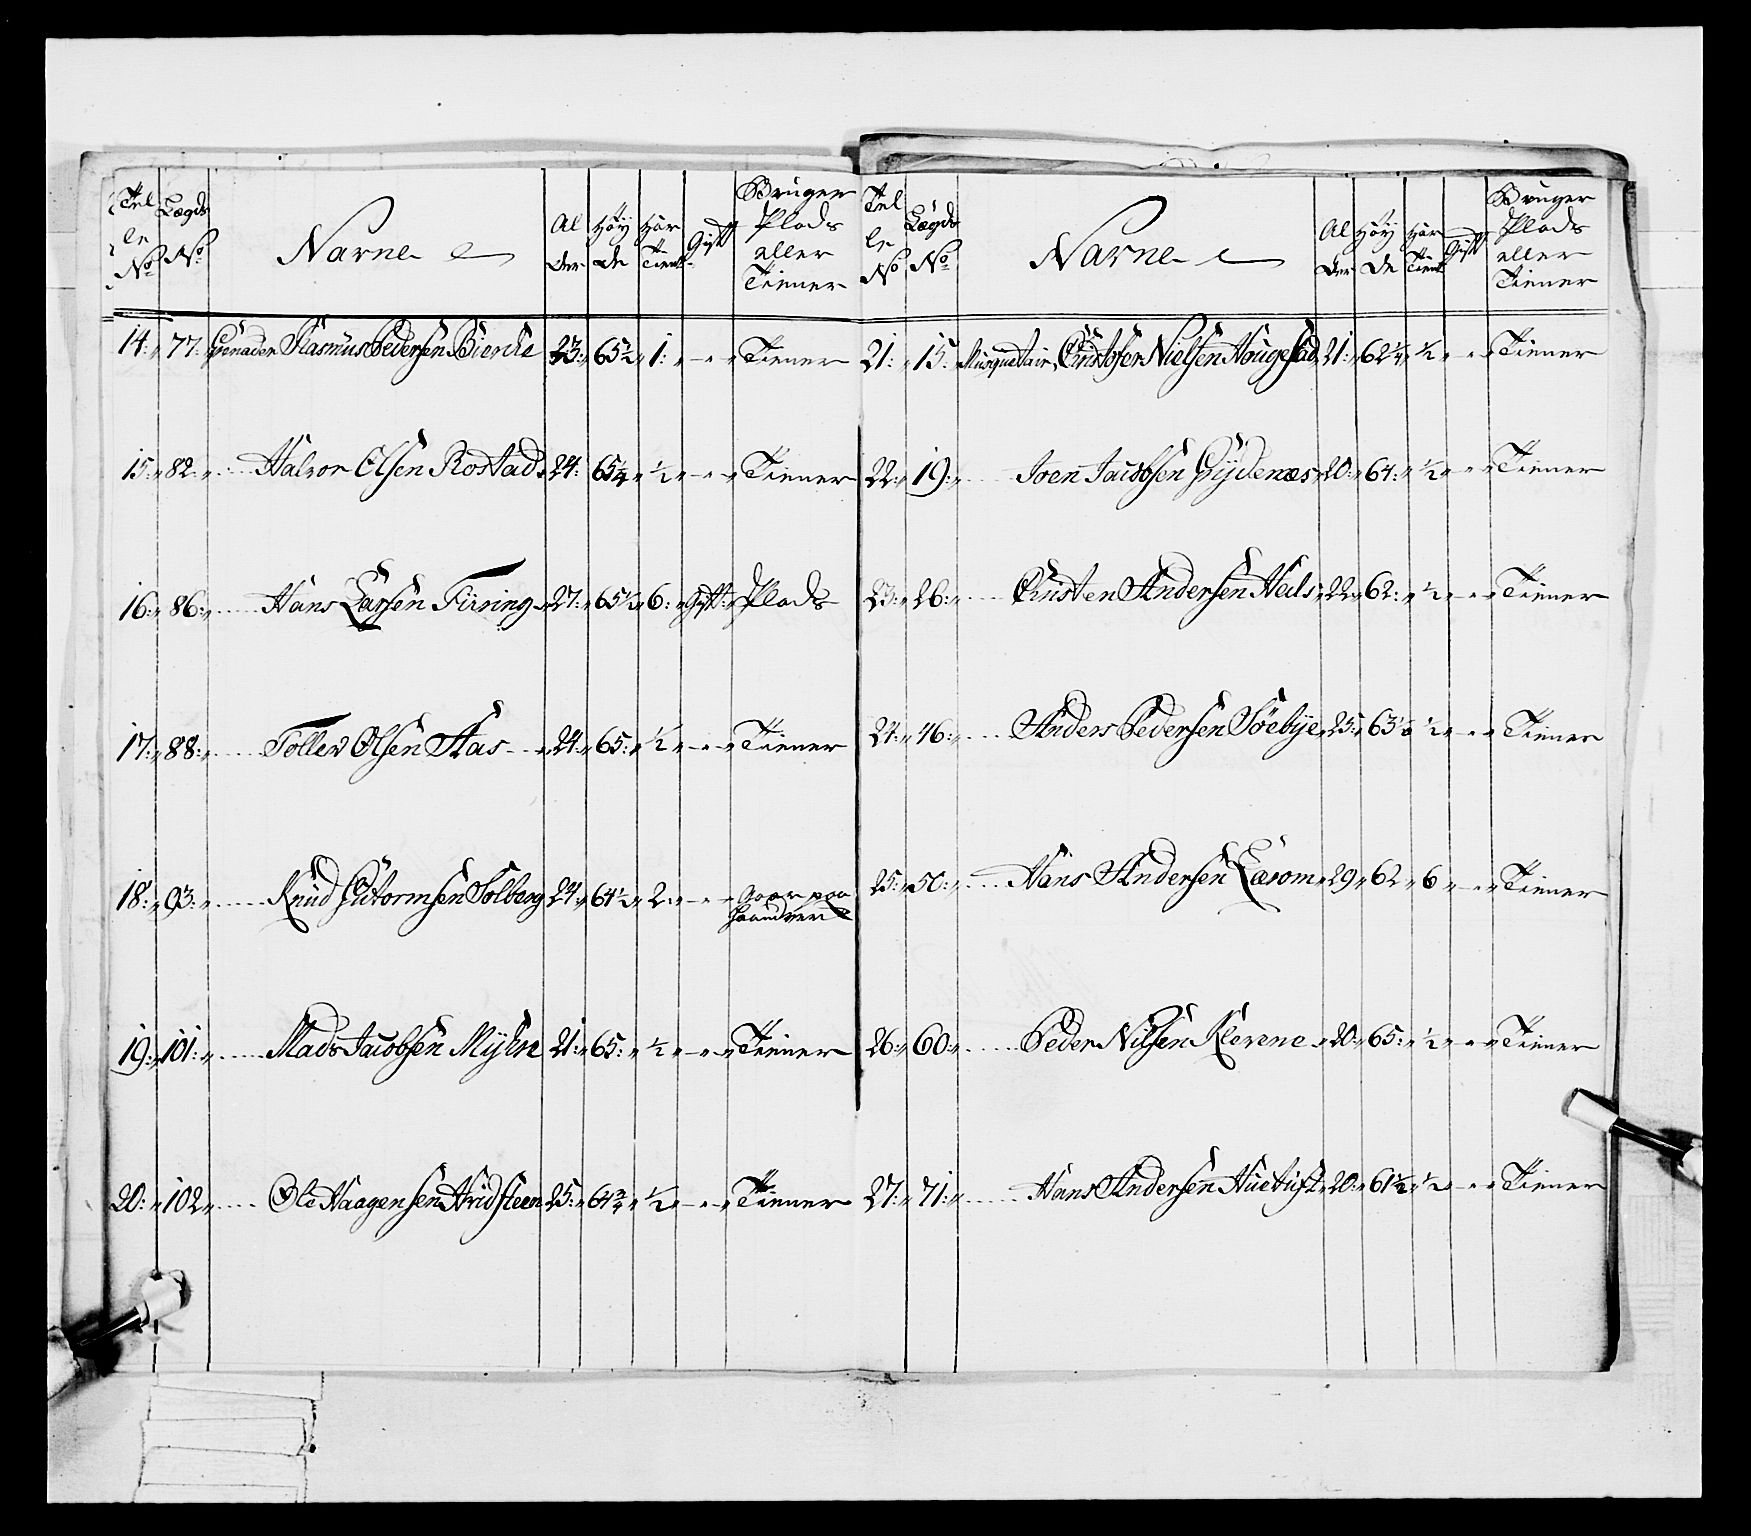 Tel le No Lægds No Navne Al der Høy de Har Tient Gift Bruger Plads eller Tiener
14: 77: Grenader Rasmus Pedersen Bierche 23: 65½ 1: Tiener
15: 82: Halvor Olsen Rostad 24: 65¼ ½ Tiener
16: 86: Hans Larsen Fiiring 27: 65½ 6: Gift: Plads
17: 88: Tollev Olsen Aas 24: 65: ½ Tiener
18: 93: Knud Guttormsen Solberg 24: 64½ 2: Gaar paa Haandverk
19: 101: Mads Jacobsen Myhre 21: 65: ½ Tiener
20: 102 Ole Haagensen Hvidsteen 25: 64¾ ½ Tiener
Tel le No Lægds No Navne Al der Høy de Har Tient Gift Bruger Plads eller Tiener
21: 15: Musquetair Christofer Nielsen Hougestad 21: 62¼ ½ Tiener
22: 19: Joen Jacobsen 20: 64: ½ Tiener
23: 26: Christen Andersen Hals 22 62: ½ Tiener
24: 46: Anders Pedersen Söebye 25: 63½ ½ Tiener
25: 50: Hans Andersen 29 62 6 Tiener
26: 60: Peder Nilsen Klevene 20: 65: ½ Tiener
27: 71: Hans Andersen Huetuft 20: 61½ ½ Tiener